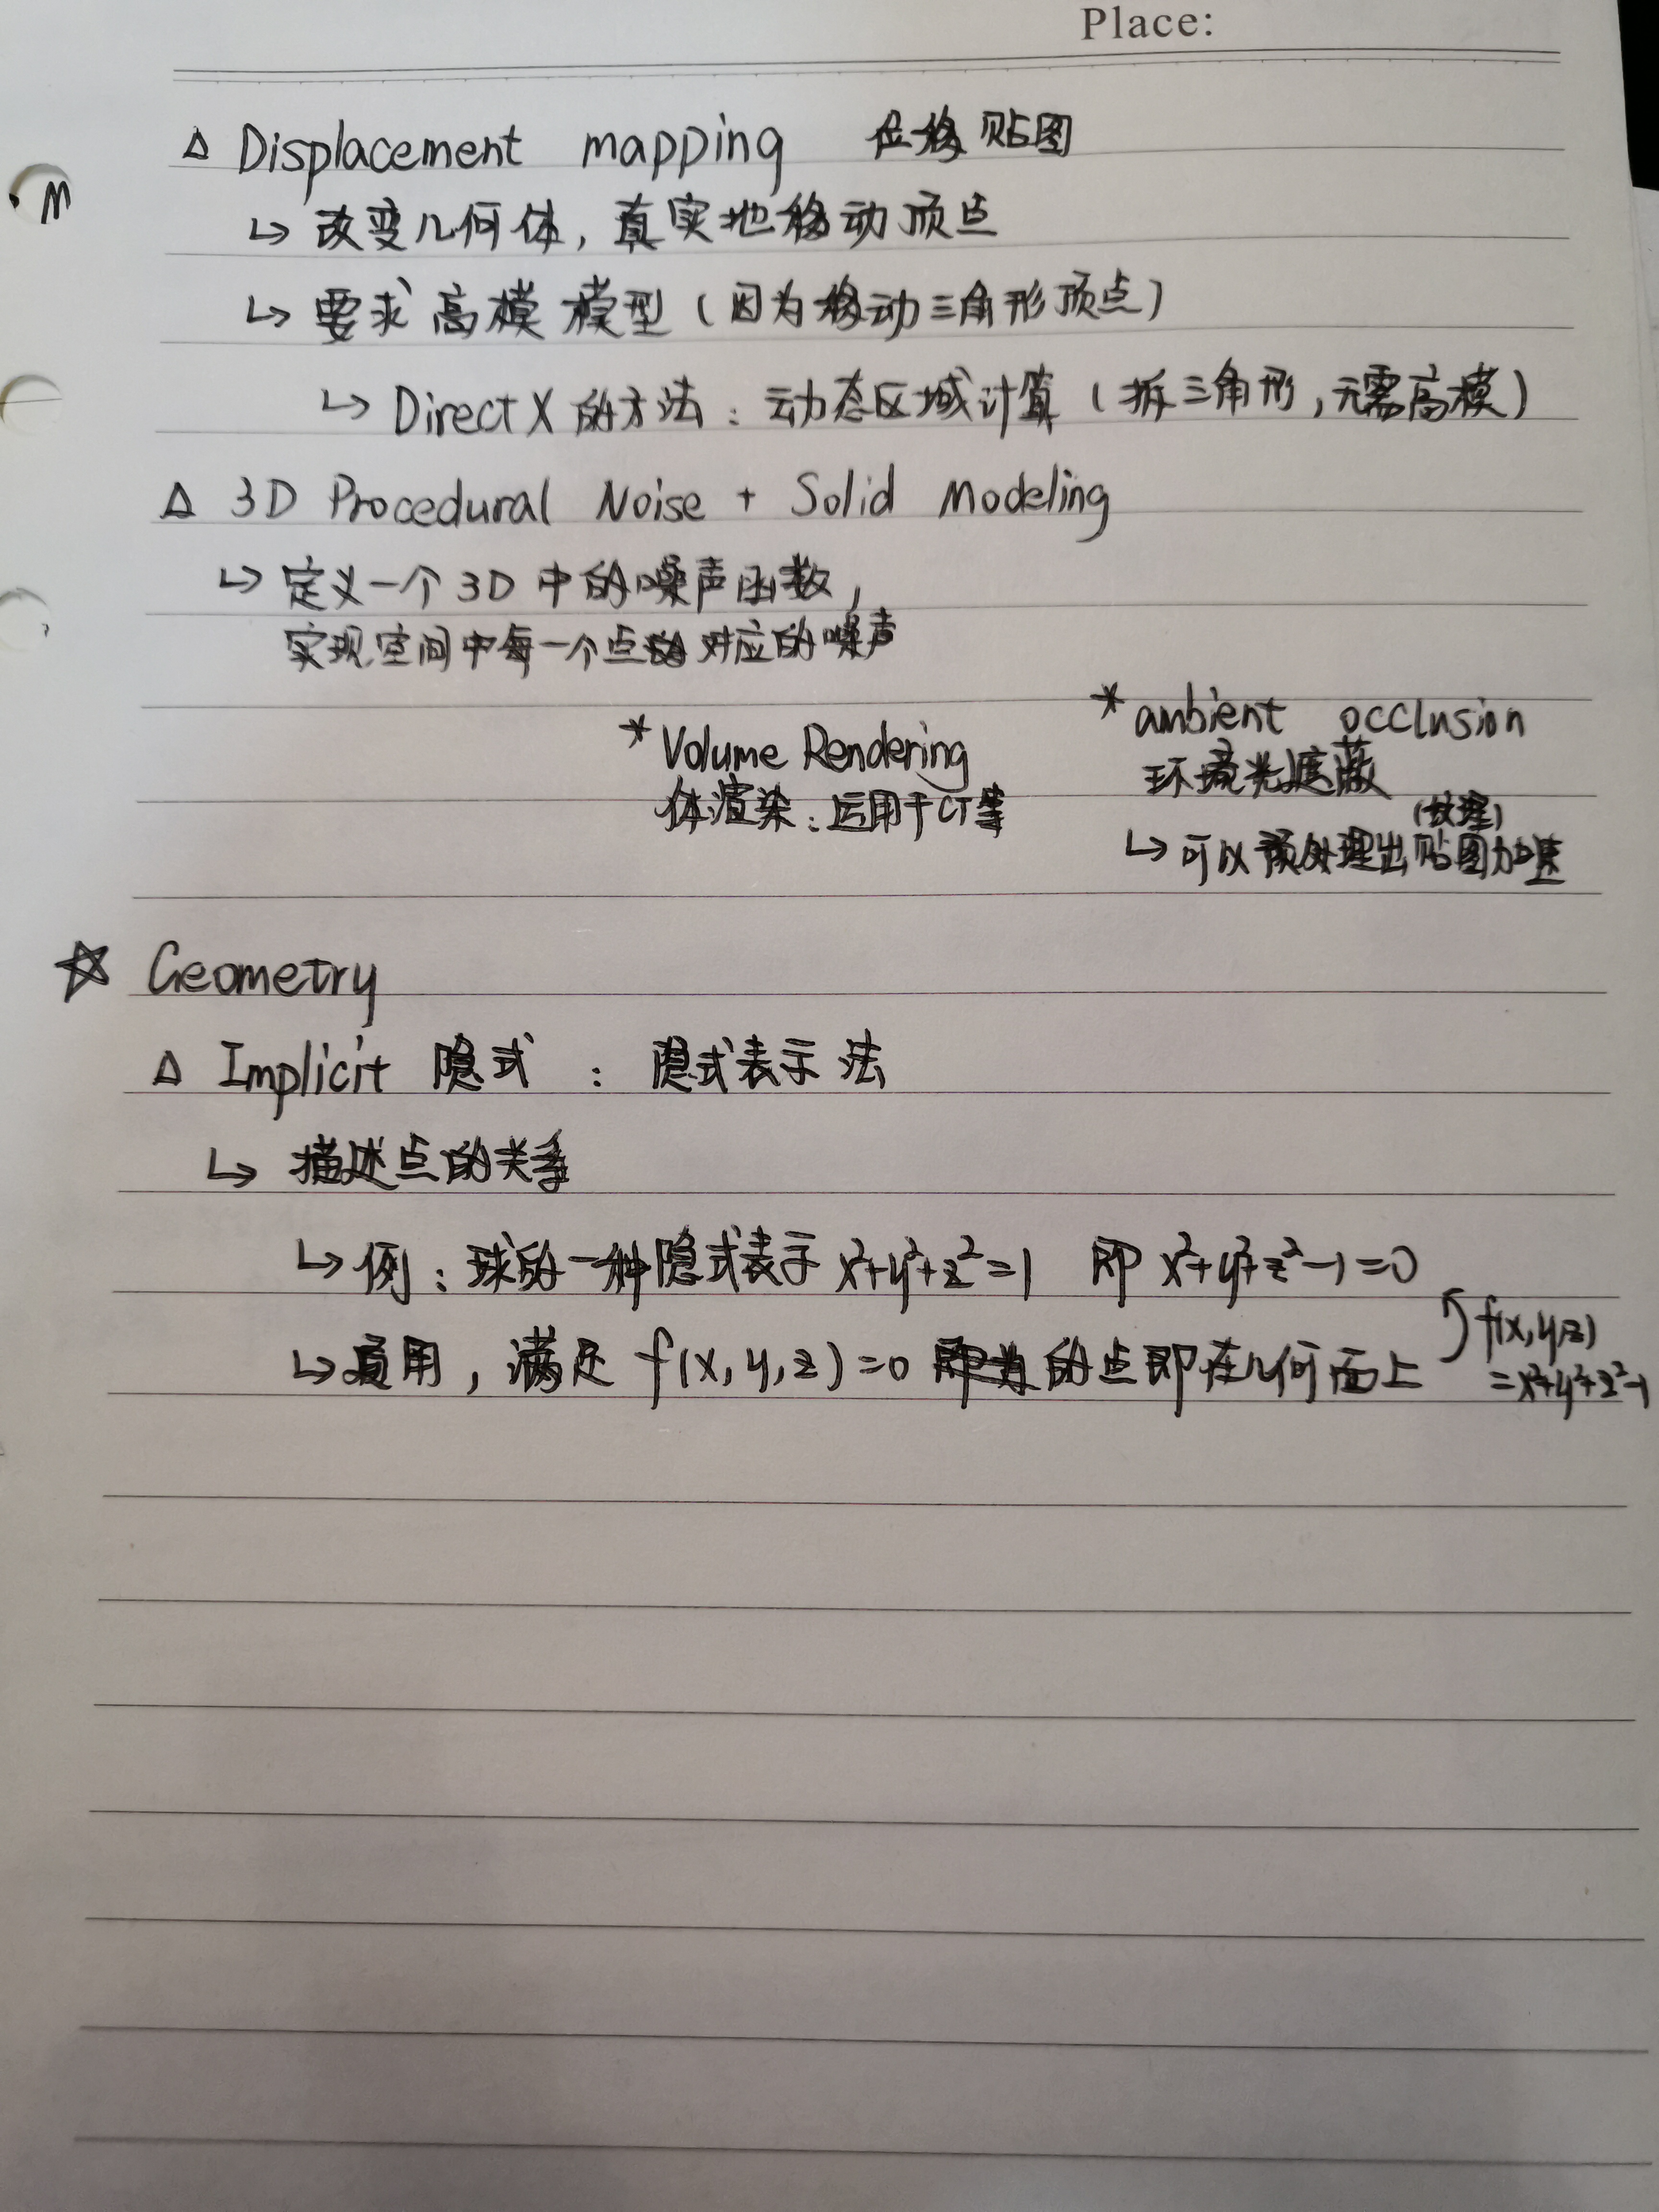 Place:
△ Displacement mapping 位移贴图
↳ 改变几何体,真实地移动顶点
↳ 要求高模模型(因为移动三角形顶点)
↳ DirectX的方法:动态区域计算(拆三角形,无需高模)
△ 3D Procedural Noise + Solid Modeling
↳ 定义一个3D中的噪声函数,
实现空间中每一个点对应的噪声
* Volume Rendering
体渲染:运用于CT等
* ambient occlusion
环境光遮蔽
(纹理)
↳ 可以预处理出贴图加速
☆ Geometry
△ Implicit 隐式 : 隐式表示法
↳ 描述点的关系
↳ 例:球的一种隐式表示 x²+y²+z²=1 即 x²+y²+z²-1=0
f(x,y,z)
=x²+y²+z²-1
↳ 通用,满足 f(x,y,z)=0 的点即在几何面上